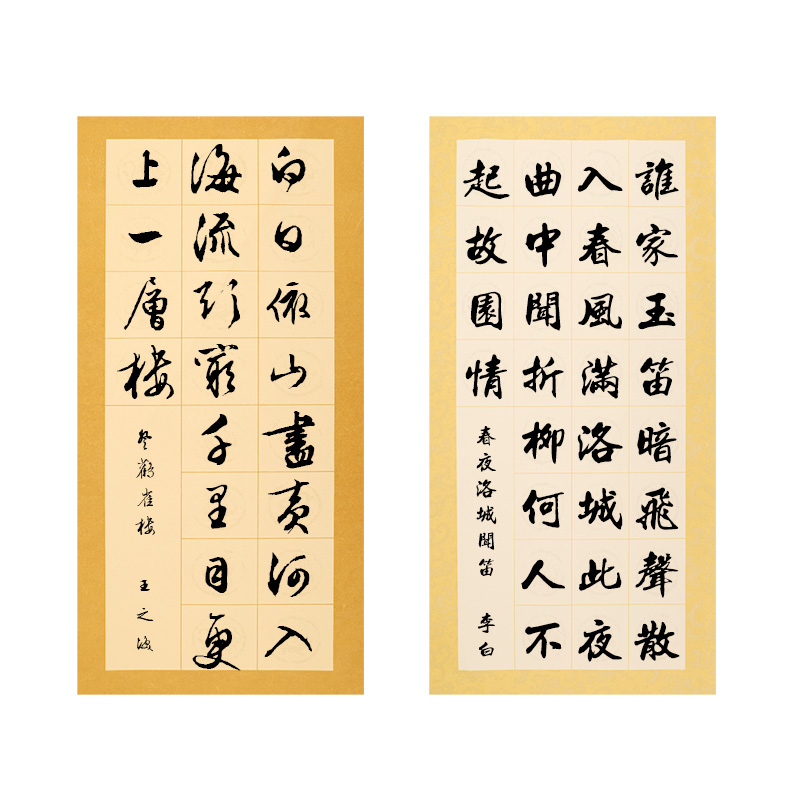 白日依山盡黄河入
海流欲窮千里目更
上一層樓
登鸛雀樓 王之渙
誰家玉笛暗飛聲散
入春風滿洛城此夜
曲中聞折柳何人不
起故園情
春夜洛城聞笛 李白